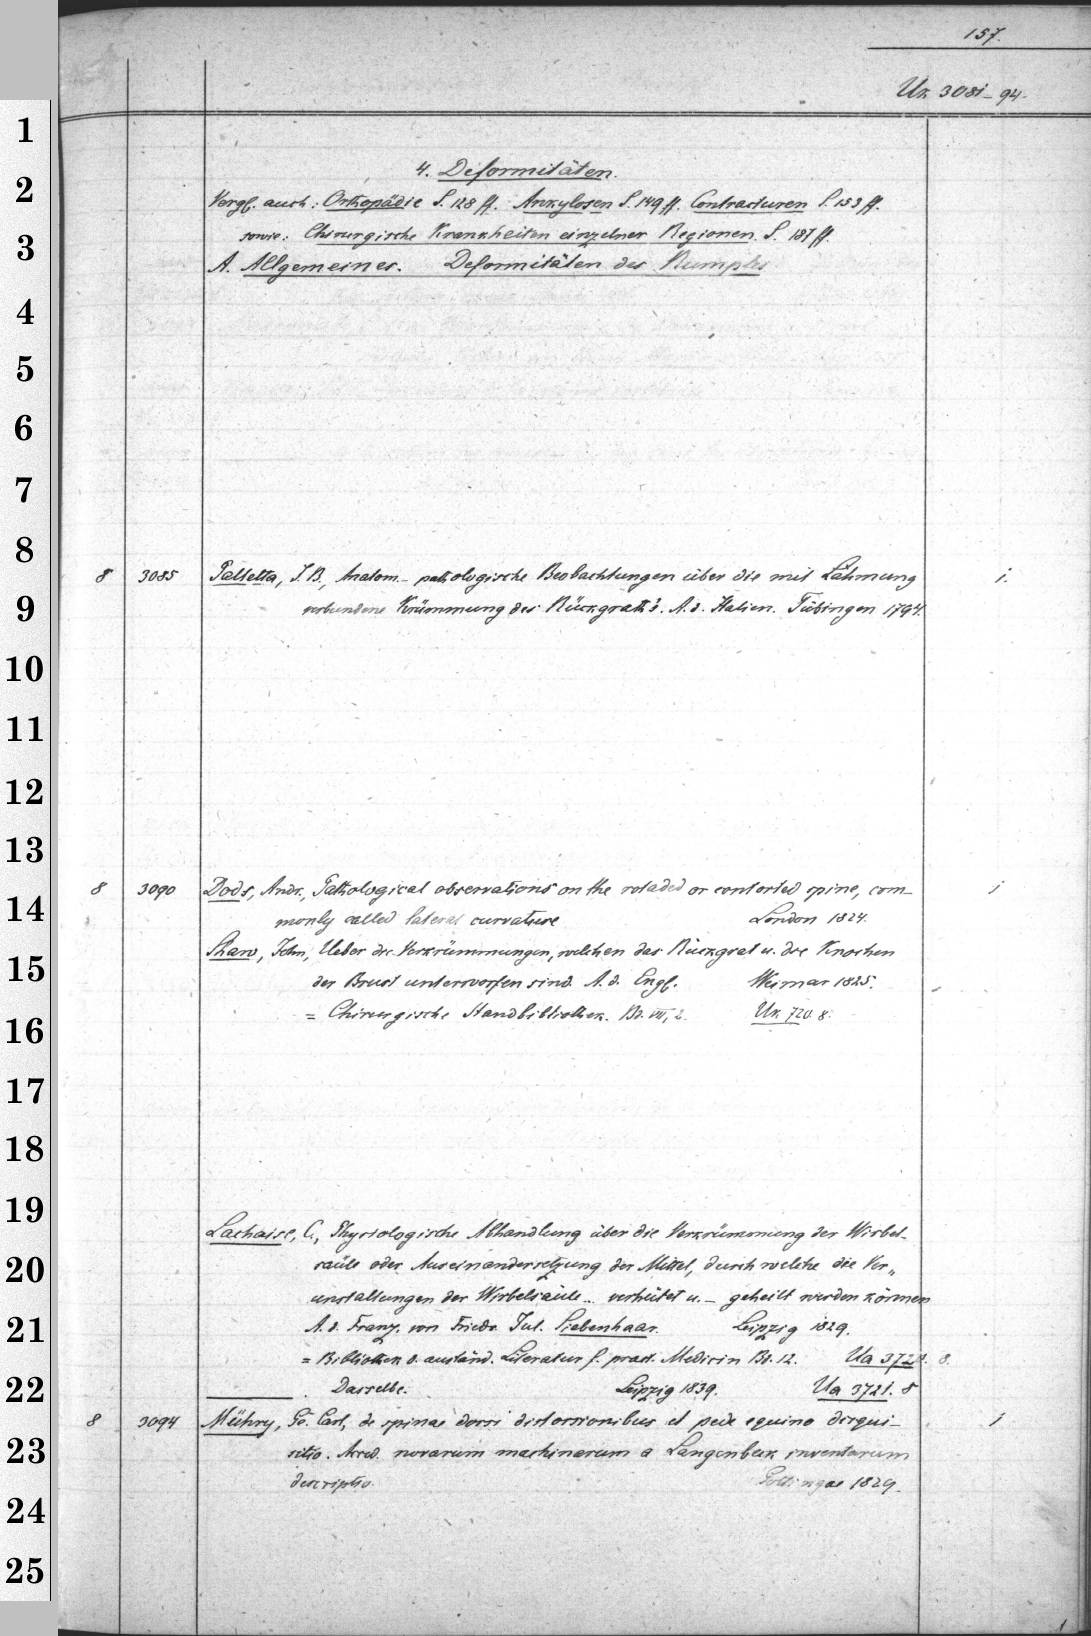 157.
Ux 3081-94.
1
4. Deformitäten.
2
Vergl. auch: Orthopädie S. 128 ff. Ankylosen S. 149 ff. Contracturen S. 153 ff.
sowie: Chirurgische Krankheiten einzelner Regionen. S. 187 ff.
3
A. Allgemeines. Deformitäten des Rumpfes
4
5
6
7
8
8 3085 Palletta, J. B., Anatom.- pathologische Beobachtungen über die mit Lähmung j.
9
verbundene Krümmung des Rückgrath's. A. d. Italien. Tübingen 1794.
10
11
12
13
8 3090 Dods, Andr., Pathological observations on the rotaded or contorted spine, com- j
14
monly called lateral curvature London 1824.
Shaw, John, Ueber die Verkrümmungen, welchen das Rückgrat u. die Knochen
15
der Brust unterworfen sind. A. d. Engl. Weimar 1825.
= Chirurgische Handbibliothek. Bd. VII, 2. Ux. 720. 8.
16
17
18
19
Lachaise, C., Physiologische Abhandlung über die Verkrümmung der Wirbel-
20
säule oder Auseinandersetzung der Mittel, durch welche die Ver„
unstaltungen der Wirbelsäule... verhütet u. - geheilt werden können
21
A. d. Franz. von Friedr. Jul. Siebenhaar. Leipzig 1829.
= Bibliothek d. ausländ. Literatur f. pract. Medicin Bd. 12. Ua 3720. 8.
22
———. Dasselbe. Leipzig 1839. Ua 3721. 8
8 3094 Mühry, Go. Carl, de spinae dorsi distorsionibus et pede equino disqui- j
23
sitio. Acced. novarum machinarum a Langenbeck inventarum
descriptio. Gottingae 1829.
24
25